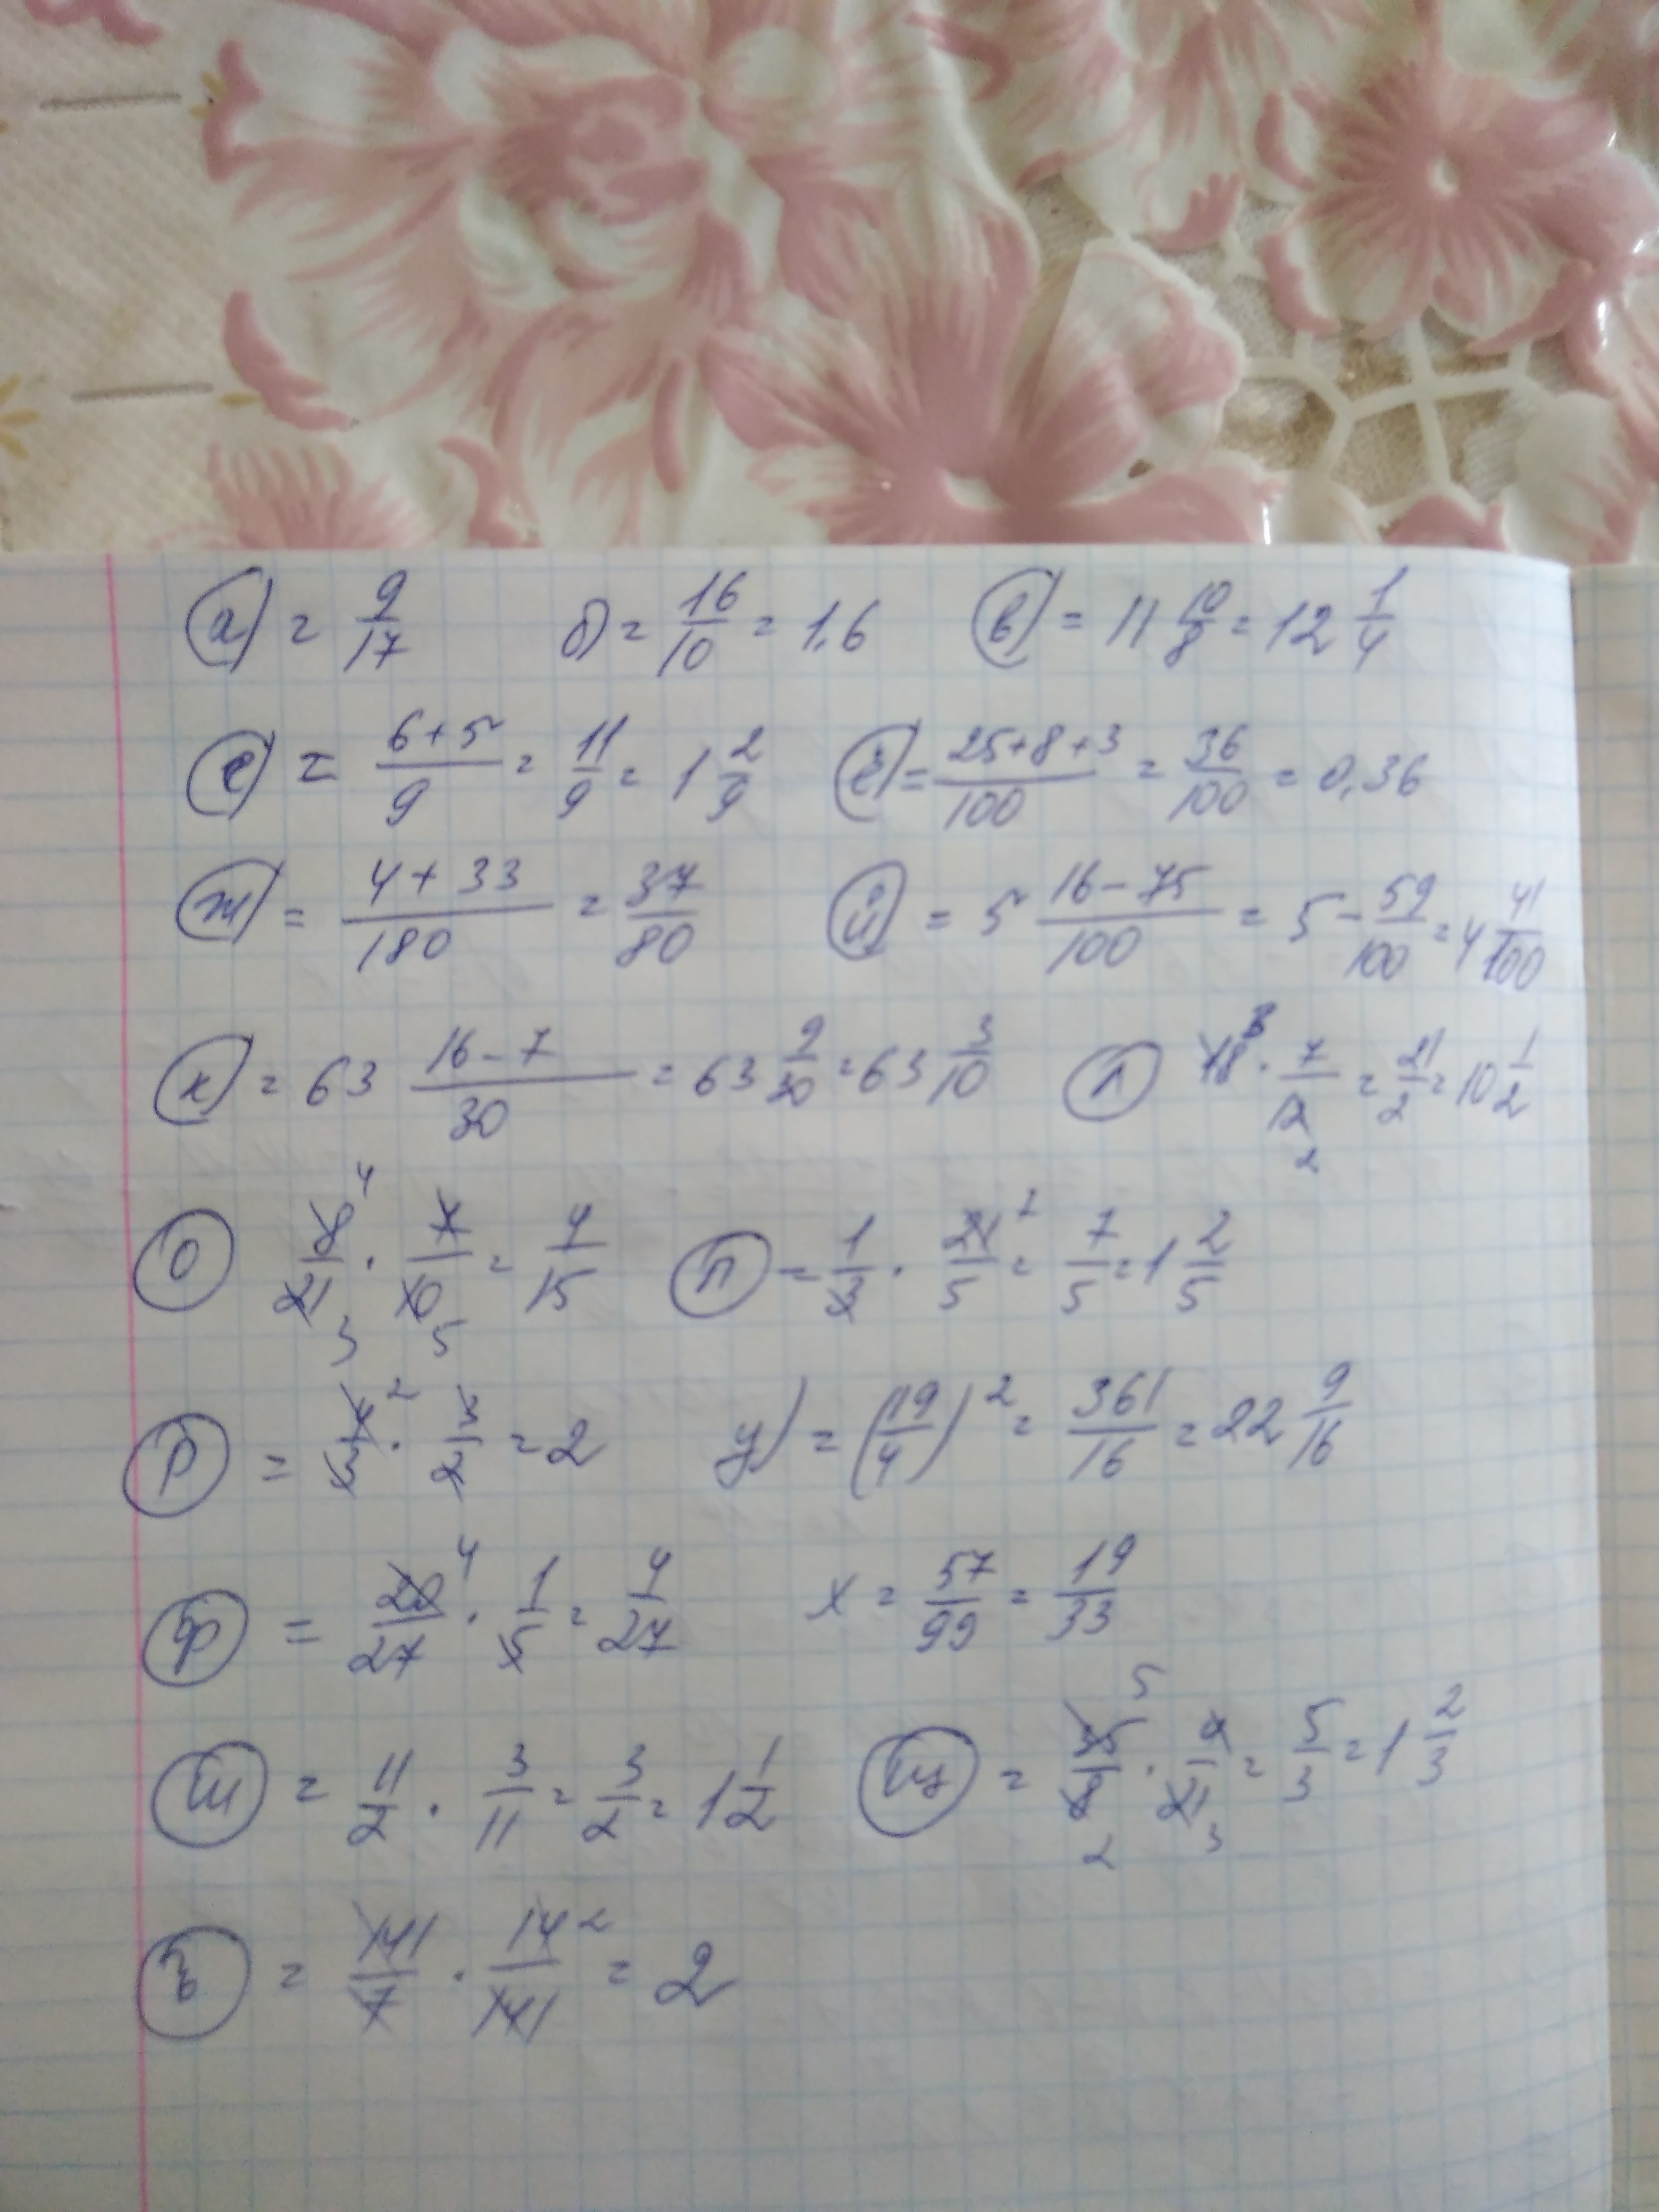 а) = 9/17 б) = 16/10 = 1,6 в) = 11 10/8 = 12 1/4
е) = (6+5)/9 = 11/9 = 1 2/9 ё) = (25+8+3)/100 = 36/100 = 0,36
ж) = (4+33)/180 = 37/80 й) = 5 (16-75)/100 = 5 - 59/100 = 4 41/100
к) = 63 (16-7)/30 = 63 9/30 = 63 3/10 л) 18 3 · 7/12 2 = 21/2 = 10 1/2
о) 8 4/21 3 · 7/10 5 = 4/15 п) = 1/3 · 21 7/5 = 7/5 = 1 2/5
р) = 4 2/3 · 3/2 = 2 у) = (19/4)² = 361/16 = 22 9/16
ф) = 20 4/27 · 1/5 = 4/27 х = 57/99 = 19/33
ш) = 11/2 · 3/11 = 3/2 = 1 1/2 щ) = 35 5/8 2 · /21 3 = 5/3 = 1 2/3
ъ) = 141/7 · 14 2/141 = 2